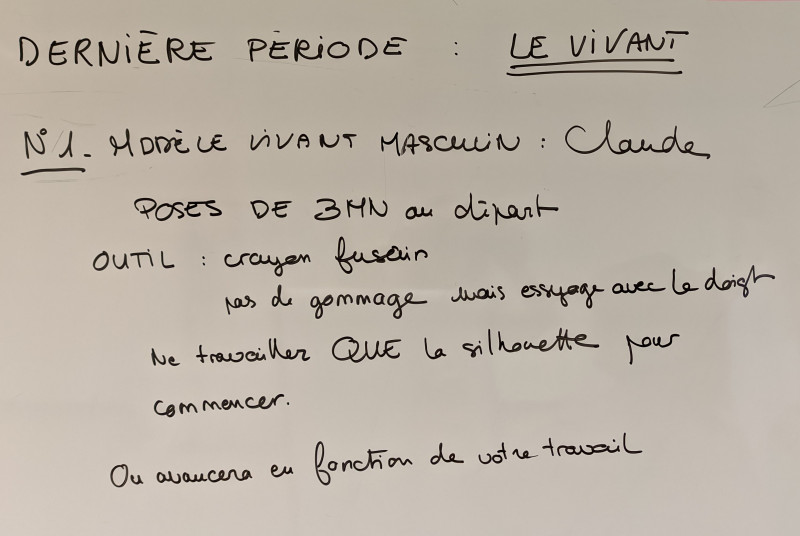 DERNIÈRE PÉRIODE : LE VIVANT
N°1. MODÈLE VIVANT MASCULIN : Claude
POSES DE 3MN au départ
OUTIL : crayon fusain
pas de gommage mais essuyage avec le doigt
Ne travailler QUE la silhouette pour
commencer.
On avancera en fonction de votre travail